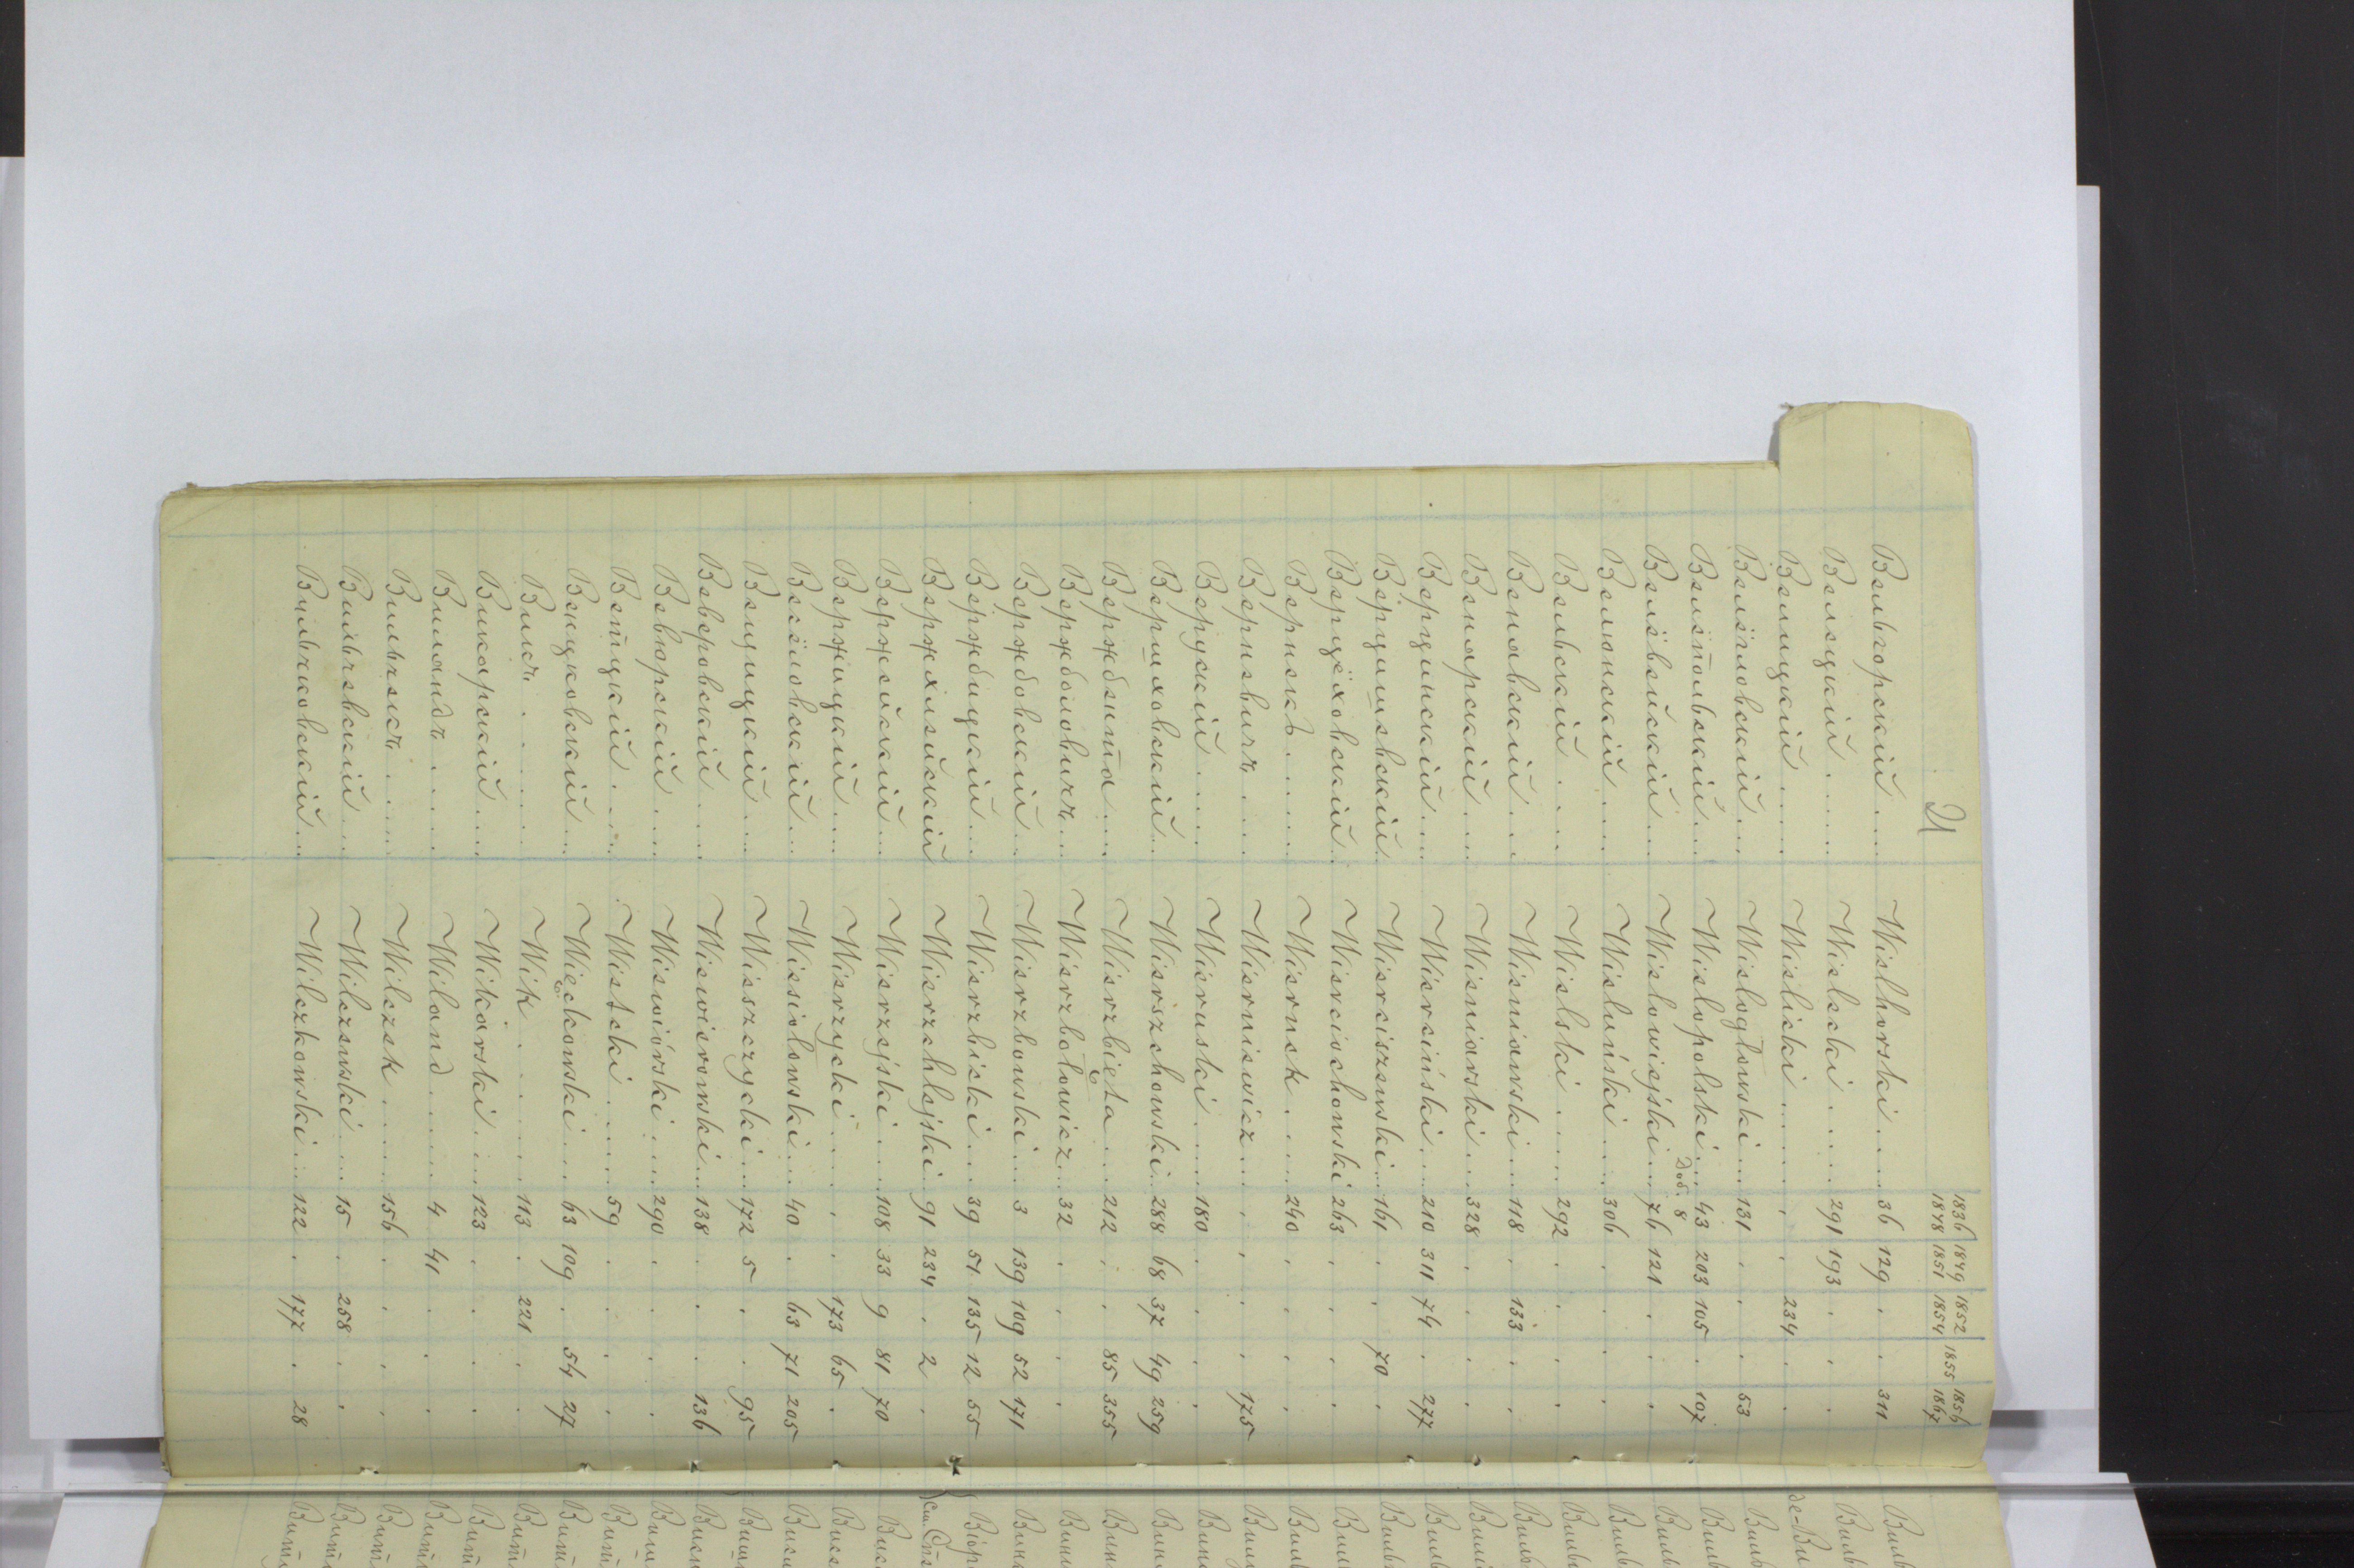 И
1836 1849 1852 1855 1856
1848 1851 1854 1867
Вельгорскій .... Wielhorski .... 36 129 . . 311
Велецкій ..... Wielecki .... 291 193 . . .
Велицкій ..... Wielicki ...... . . 234 . .
Велёгловскій ... Wielogłowski ... 131 . . . 53
Доб. 8
Велёпольскій ... Wielopolski ... 43 203 105 . 107
Велёвейскій ... Wielowiejski ... 76 121 . . .
Велюнскій .... Wieluński .... 306 . . . .
Вельскій .... Wielski ..... 292 . . . .
Венявскій ... Wieniawski ... 118 . 133 . .
Венярскій .... Wieniarski ... 328 . . . .
Верцинскій ... Wierciński ... 210 311 74 . 277
Верцишевскій Wierciszewski ... 161 . . 70 .
Верцёховскій . Wierciochowski 263 . . . .
Вернекъ ...... Wiernek ..... 240 . . . .
Верневичъ .... Wierniewicz .... . . . . 175
Верускій ..... Wieruski ..... 180 . . . .
Вершховскій ... Wierszchowski ... 288 68 37 49 259
Вержбента .... Wierzbięta ... 212 . . 85 355
Вержболовичъ ... Wierzbołowicz ... 32 . . . .
Вержбовскій ... Wierzbowski ... 3 139 109 52 171
Вержбицкій ... Wierzbicki ... 39 51 135 12 55
Вержхлейскій Wierzchlejski 91 234 . 2 .
Вержейскій ... Wierzejski .... 108 33 9 81 70
Вержицкій .... Wierzycki ..... . . 173 65 .
Весёловскій ... Wiesiołowski ... 40 . 63 71 205
Вещицкій .... Wieszczycki ... 172 5 . . 95
Веверовскій .... Wiewierowski ... 138 . . . 136
Веворскій .... Wiewiórski ... 290 . . . .
Ветцкій .... Wietcki ..... 59 . . . .
Венцковскій ... Więckowski ... 63 109 . 54 27
Викъ ...... Wik ....... 113 . 221 . .
Викарскій .... Wikarski ... 123 . . . .
Виландъ .... Wiland ..... 4 41 . . .
Вильчекъ .... Wilczek ..... 156 . . . .
Вильчевскій ... Wilczewski ... 15 . 258 . .
Вильчковскій ... Wilczkowski ... 122 . 177 . 28